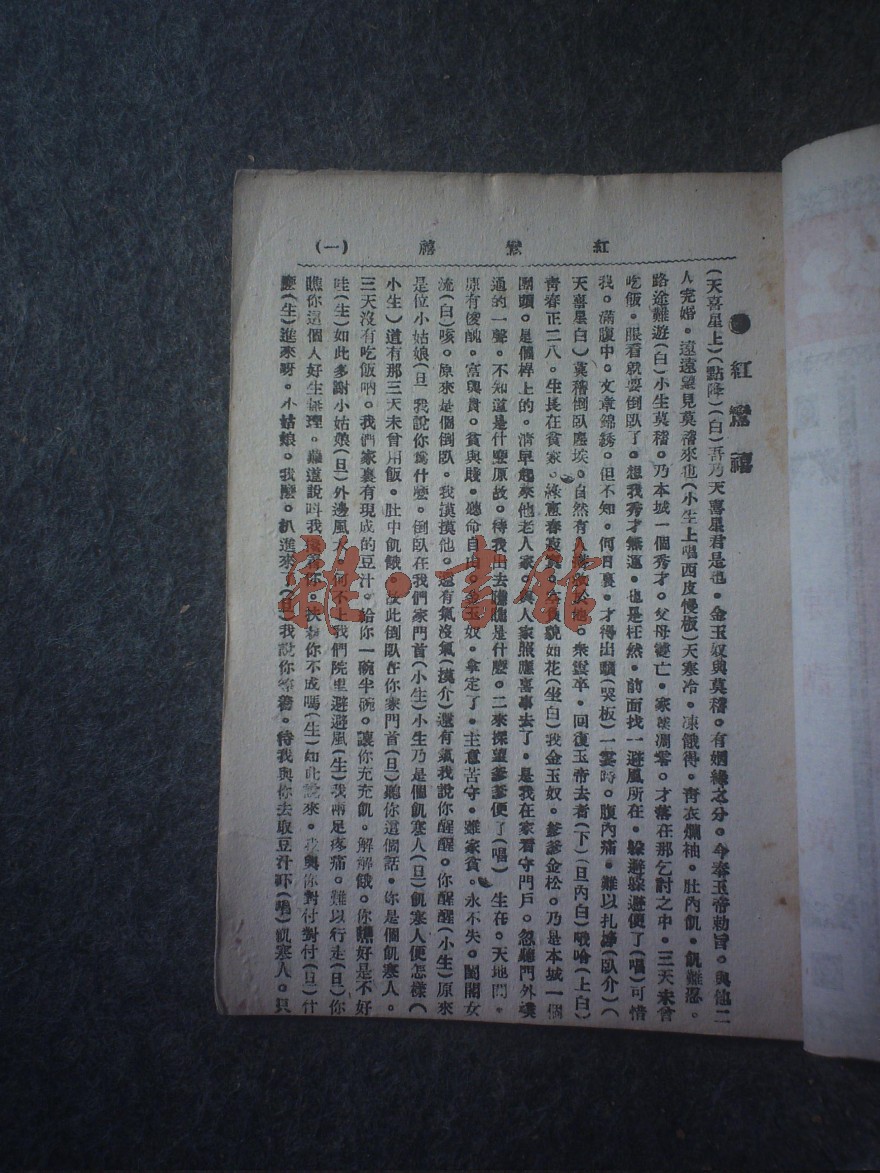 紅鸞禧 (一)
●紅鸞禧
(天喜星上)(點降)(白)吾乃天喜星君是也。金玉奴與莫稽。有姻緣之分。今奉玉帝勅旨。與他二
人完婚。遠遠望見莫稽來也(小生上唱西皮慢板)天寒冷。凍餓得。靑衣爛袖。肚內飢。飢難忍。
路途難遊(白)小生莫稽。乃本城一個秀才。父母雙亡。家業凋零。才落在那乞討之中。三天未曾
吃飯。眼看就要倒臥了。想我秀才無運。也是枉然。前面找一避風所在。躲避躲避便了(唱)可惜
我。滿腹中。文章錦綉。但不知。何日裏。才得出頭(哭板)一霎時。腹內痛。難以扎掙(臥介)(
天喜星白)莫稽倒臥塵埃。自然有人搭救於他。衆雲卒。回復玉帝去者(下)(旦內白)哦哈(上白)
靑春正二八。生長在貧家。綠窻春寂寞。空負貌如花(坐白)我金玉奴。爹爹金松。乃是本城一個
團頭。是個桿上的。淸早起來他老人家。與人家照應喜事去了。是我在家看守門戶。忽聽門外噗
通的一聲。不知道是什麽原故。待我出去瞧瞧是什麽。二來探望爹爹便了(唱) 生在。天地間。
原有俊醜。富與貴。貧與賤。聽命自由。金玉奴。拿定了。主意苦守。雖家貧。永不失。閨閣女
流(白)咳。原來是個倒臥。我摸摸他。還有氣沒氣(摸介)還有氣我說你醒醒。你醒醒(小生)原來
是位小姑娘(旦)我說你爲什麽。倒臥在我們家門首(小生)小生乃是個飢寒人(旦)飢寒人便怎樣(
小生)道有那三天未曾用飯。肚中飢餓。故此倒臥在你家門首(旦)聽你這個話。你是個飢寒人。
三天沒有吃飯吶。我們家裏有現成的豆汁。給你一碗半碗。讓你充充飢。解解餓。你瞧好是不好
哇(生)如此多謝小姑娘(旦)外邊風大。何不上我們院里避避風(生)我兩足疼痛。難以行走(旦)你
瞧你這個人好生無理。難道說叫我攙着你。扶着你不成嗎(生)如此說來。我與你對付對付(旦)什
麽(生)進來呀。小姑娘。我麽。扒進來了(旦)我說你等著。待我與你去取豆汁吓(唱)飢寒人。只
雜·書館